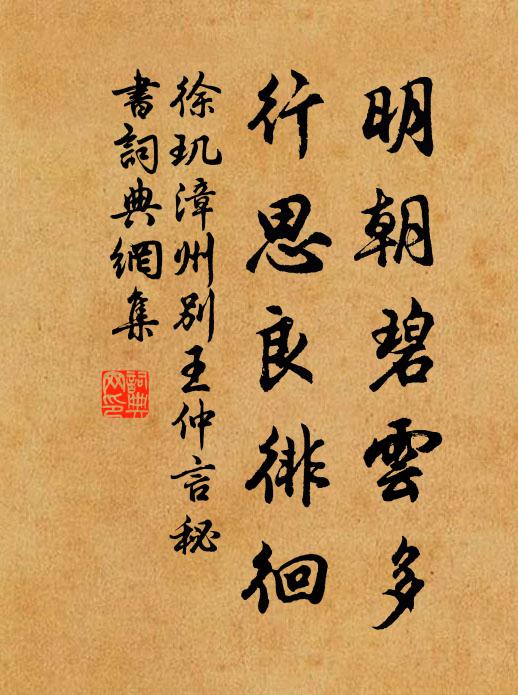 明朝碧雲多
行思良徘徊
徐玑漳州別王仲言秘
書詞典網集
詞典
網印